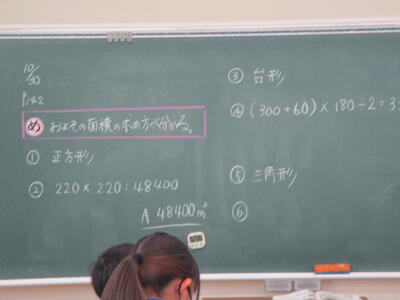 10/30
P142
め およその面積の求め方が分かる。
① 正方形
② 220×220=48400
A 48400㎡
③ 台形
④ (300+60)×180÷2=3
⑤ 三角形
⑥